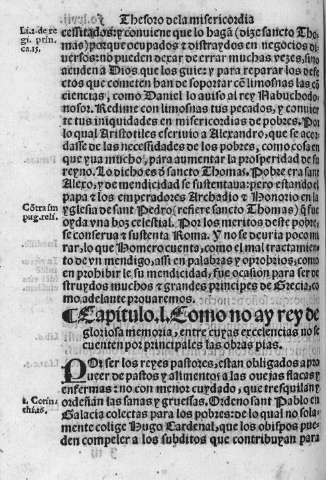 Thesoro de la misericordia
Li.2. de re
gi. prin.
ca.15.
cessitados: y conuiene que lo hagã (dize sancto Tho-
mas) porque ocupados z distraydos en negocios di-
uersos: no pueden dexar de errar muchas vezes, sino
acuden a Dios que los guie: y para reparar los defe-
ctos que cometen han de soportar cõ limosnas las cõ
ciencias, como Daniel lo auiso al rey Nabuchodo-
nosor. Redime con limosnas tus pecados, y conuier
te tus iniquidades en misericordias de pobres. Por
lo qual Aristotiles escriuio a Alexandro, que se acor-
dasse de las necessidades de los pobres, como cosa en
que yua mucho, para aumentar la prosperidad de su
reyno. Lo dicho es d sancto Thomas. Pobre era sant
Alexo, y de mendicidad se sustentaua: pero estando el
papa z los emperadores Archadio z Honorio en la
Cõtra im
pug. reli.
yglesia de sant Pedro (refiere sancto Thomas) q̃ fue
oyda vna boz celestial. Por los meritos deste pobre
se conserua z sustenta Roma. Y no se deuria poco mi
rar, lo que Homero cuenta, como el mal tractamien-
to de vn mendigo, assi en palabras y oprobrios, como
en prohibir le su mendicidad, fue ocasion para ser de
struydos muchos z grandes principes de Grecia, co
mo adelante prouaremos.
¶ Capitulo. l. Como no ay rey de
gloriosa memoria, entre cuyas excelencias no se
cuenten por principales las obras pias.
POr ser los reyes pastores, estan obligados a pro
ueer de pastos y alimentos a las ouejas flacas y
enfermas: no con menor cuydado, que tresquilan y
ordeñan las sanas y gruessas. Ordeno sant Pablo en
1. Corin.
16.
Galacia colectas para los pobres: de lo qual no sola-
mente colige Hugo Cardenal, que los obispos pue-
den compeler a los subditos que contribuyan para